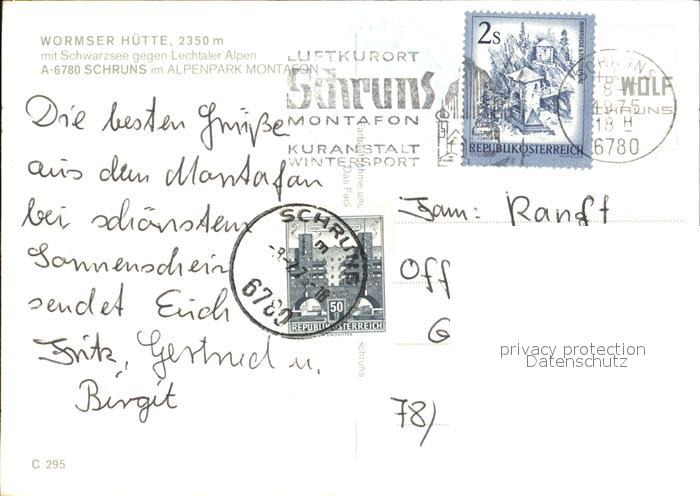 WORMSER HÜTTE, 2350 m
mit Schwarzsee gegen Lechtaler Alpen
A-6780 SCHRUNS im ALPENPARK MONTAFON
LUFTKURORT
Schruns
MONTAFON
KURANSTALT
WINTERSPORT
2s
REPUBLIK ÖSTERREICH
SCHRUNS
1975
18 H
6780
WOLF
SCHRUNS
Die besten Grüße
aus dem Montafon
bei schönstem
Sonnenschein
sendet Euch
Fritz, Gertrud u.
Birgit
SCHRUNS
6780
50
REPUBLIK ÖSTERREICH
schruns
Fam: Ranft
Off
G
78)
privacy protection
Datenschutz
C 295